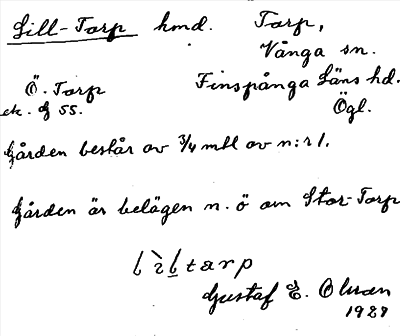 Lill-Torp hmd. Torp,
Vånga sn.
Ö. Torp Finspånga Läns hd.
ek. bl 55. Ögl.
Gården består av 3/4 mtl av n:r 1.
Gården är belägen n. ö om Stor-Torp
Gustaf E. Olsson
1929